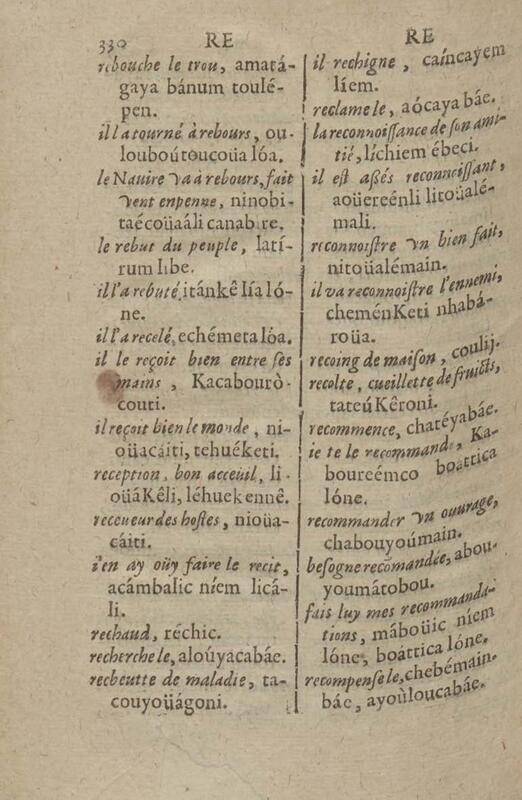 330 RE
rebouche le trou, amatá-
gaya bánum toulé-
pen.
il l'a tourné à rebours, ou-
louboútouçoüa lóa.
le Nauire va à rebours, fait
vent enpenne, ninobi-
taécoüaáli canabire.
le rebut du peuple, latí-
rum libe.
il l'a rebuté, itánkê lía ló-
ne.
il l'a recelé, echémeta lóa.
il le reçoit bien entre ses
mains, Kacabourò-
couti.
il reçoit bien le monde, ni-
oüacáiti, tehuéketi.
reception, bon acceüil, li-
oüáKêli, léhuekennê.
receueur des hostes, nioüa-
cáiti.
i'en ay oüy faire le recit,
acámbalic níem licá-
li.
rechaud, réchic.
recherche le, aloúyacabáe.
recheutte de maladie, ta-
couyoüágoni.
RE
il rechigne, caíncayem
líem.
reclame le, aócaya báe.
la reconnoissance de son ami-
tié, líchiem ébeci.
il est assés reconnoissant,
aoüereénli litoüalé-
mali.
reconnoistre vn bien fait,
nitoüalémain.
il va reconnoistre l'ennemi,
cheménKeti nhabá-
roüa.
recoing de maison, coulij.
recolte, cueillette de fruicts,
tateú Kêroni.
recommence, chatéyabáe.
ie te le recommand, Ka-
boureémco boáttica
lóne.
recommander vn ouurage,
chabouyoúmain.
besogne recomandée, abou-
youmátobou.
fais luy mes recommanda-
tions, máboüic níem
lóne, boáttica lóne.
recompense le, chebémain-
báe, ayoùloucabáe.